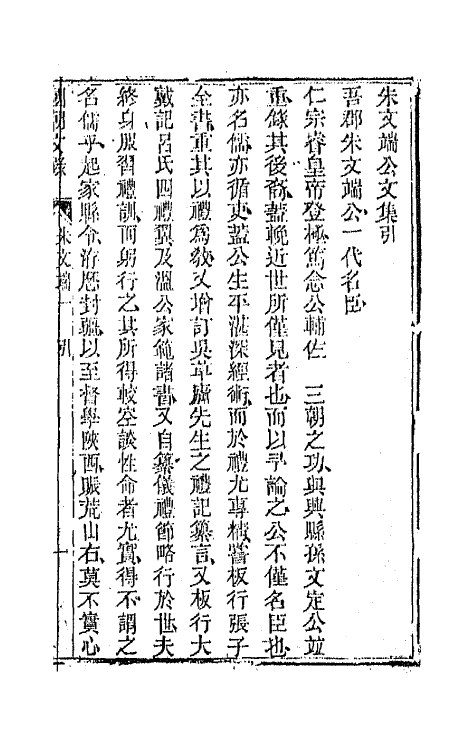 朱文端公文集引
吾郡朱文端公一代名臣
仁宗睿皇帝登極篤念公輔佐　三朝之功與興縣孫文定公竝
重錄其後裔蓋輓近世所僅見者也而以予論之公不僅名臣也
亦名儒亦循吏蓋公生平湛深經術而於禮尤專精嘗板行張子
全書重其以禮爲教又增訂吳草廬先生之禮記纂言又板行大
戴記呂氏四禮翼及溫公家範諸書又自纂儀禮節略行於世夫
終身服習禮訓而躬行之其所得較空談性命者尤實得不謂之
名儒乎起家縣令洊歷封疆以至督學陝西賑荒山右莫不實心
國朝文錄
朱文端一　引
一